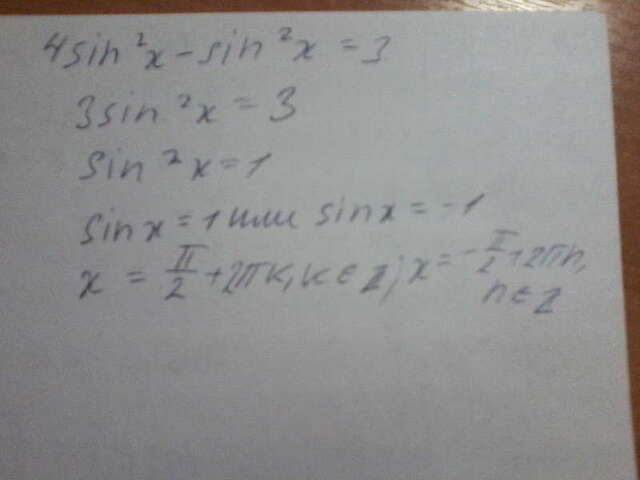 4sin²x - sin²x = 3
3sin²x = 3
sin²x = 1
sinx = 1 или sinx = -1
x = π/2 + 2πk, k ∈ Z; x = -π/2 + 2πn,
n ∈ Z